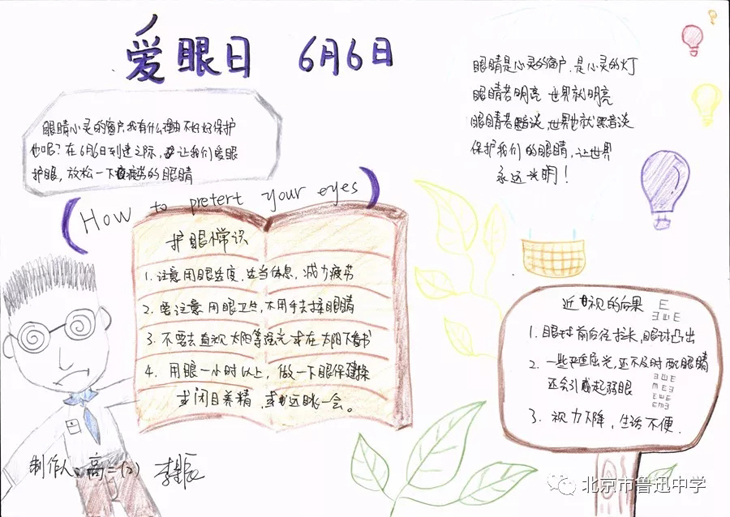 爱眼日 6月6日
眼睛是心灵的窗户,是心灵的灯
眼睛若明亮 世界就明亮
眼睛若黯淡,世界也就黑暗淡
保护我们的眼睛,让世界
永远光明!
眼睛心灵的窗户,我有什么理由不好好保护
也呢?在6月6日到达之际,让我们爱眼
护眼,放松一下疲劳的眼睛
(How to pretert your eyes)
护眼常识
1. 注意用眼适度,适当休息,减少疲劳
2. 注意用眼卫生,不用手去揉眼睛
3. 不要去直视太阳等强光 或在太阳下看书
4. 用眼一小时以上,做一下眼保健操
或闭目养精,或远眺一会。
近视的后果
E
ヨШE
1. 眼球前后径拉长,眼球凸出
2. 一些严重屈光,还不及时配眼睛
还会引起弱眼
3. 视力下降,生活不便.
制作人:高二(2)
北京市鲁迅中学